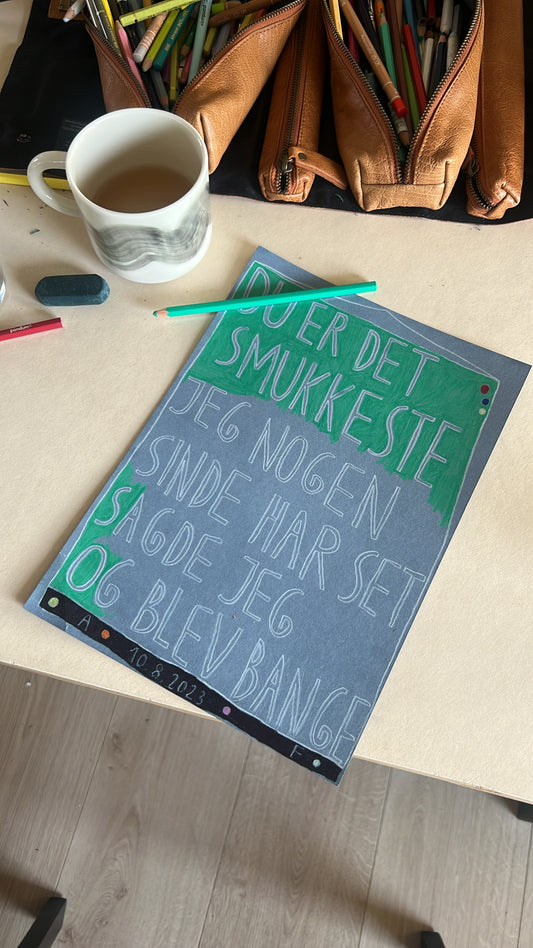 DU ER DET
SMUKKESTE
JEG NOGEN
SINDE HAR SET
SAGDE JEG
OG BLEV BANGE
A 10.8.2023 F